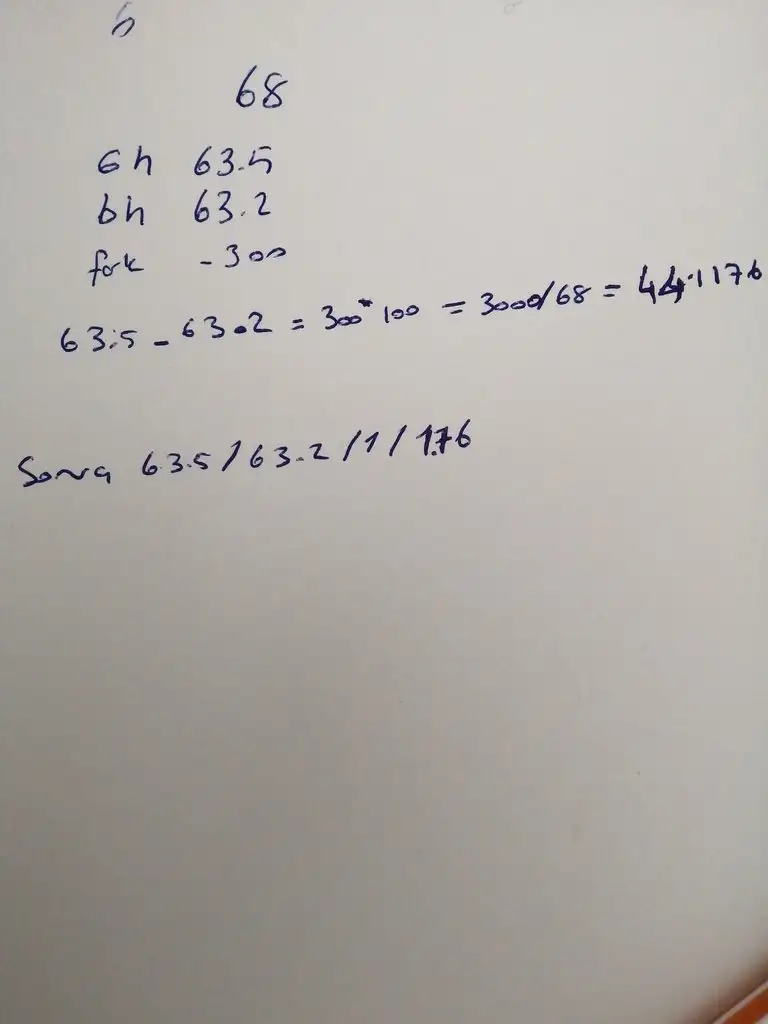 6
68
6h 63.5
bh 63.2
fark -300
63.5 - 63.2 = 300*100 = 3000/68 = 44.1176
Sonra 63.5/63.2/1/1.76